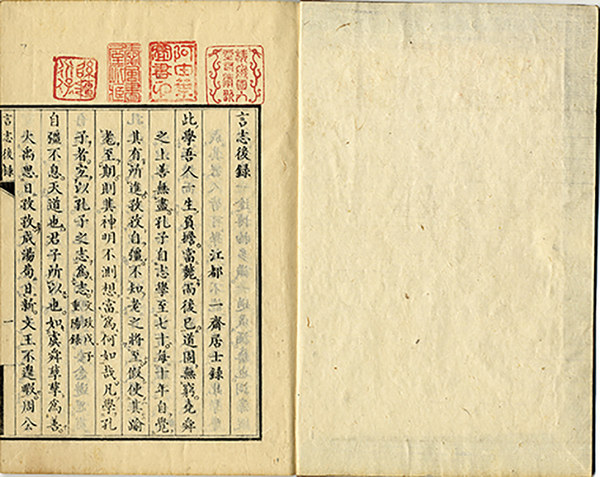 言志後録
江都 一齋居士録
此學吾人一生負擔當斃而後已道固無窮堯舜
之上善無盡孔子自志學至七十每十年自覺
其有所進孜孜自彊不知老之將至假使其踰
耄至期則其神明不測想當爲何如哉凡學孔
子者宜以孔子之志爲志 文政戊子
重陽録
自彊不息天道也君子所以也如虞舜孳孳爲善
大禹思日孜孜成湯苟日新文王不遑暇周公
言志後録 一